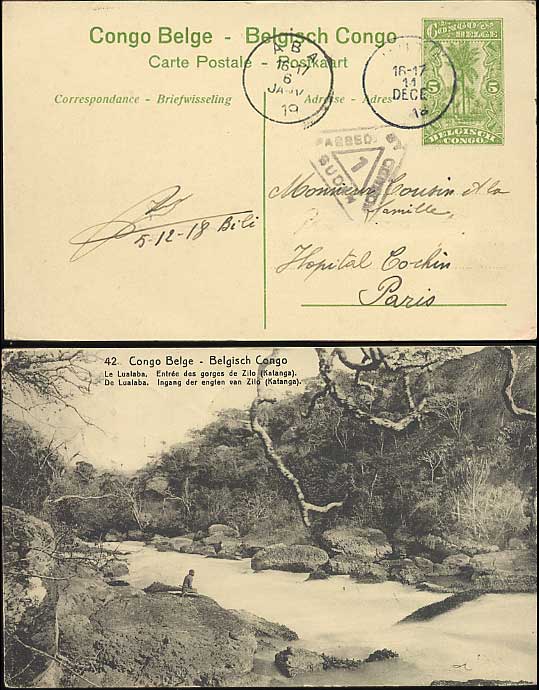 Congo Belge - Belgisch Congo
Carte Postale - Postkaart
Correspondance - Briefwisseling
Adresse - Adres
ABA
16-17
6
JANV
19
16-17
11
DECE
18
CONGO
BELGE
5 5
BELGISCH
CONGO
PASSED BY CENSOR
SUDAN
7
5-12-18 Bili
Monsieur Cousin et la
famille,
Hopital Cochin
Paris
42 Congo Belge - Belgisch Congo
Le Lualaba. Entrée des gorges de Zilo (Katanga).
De Lualaba. Ingang der engten van Zilo (Katanga).